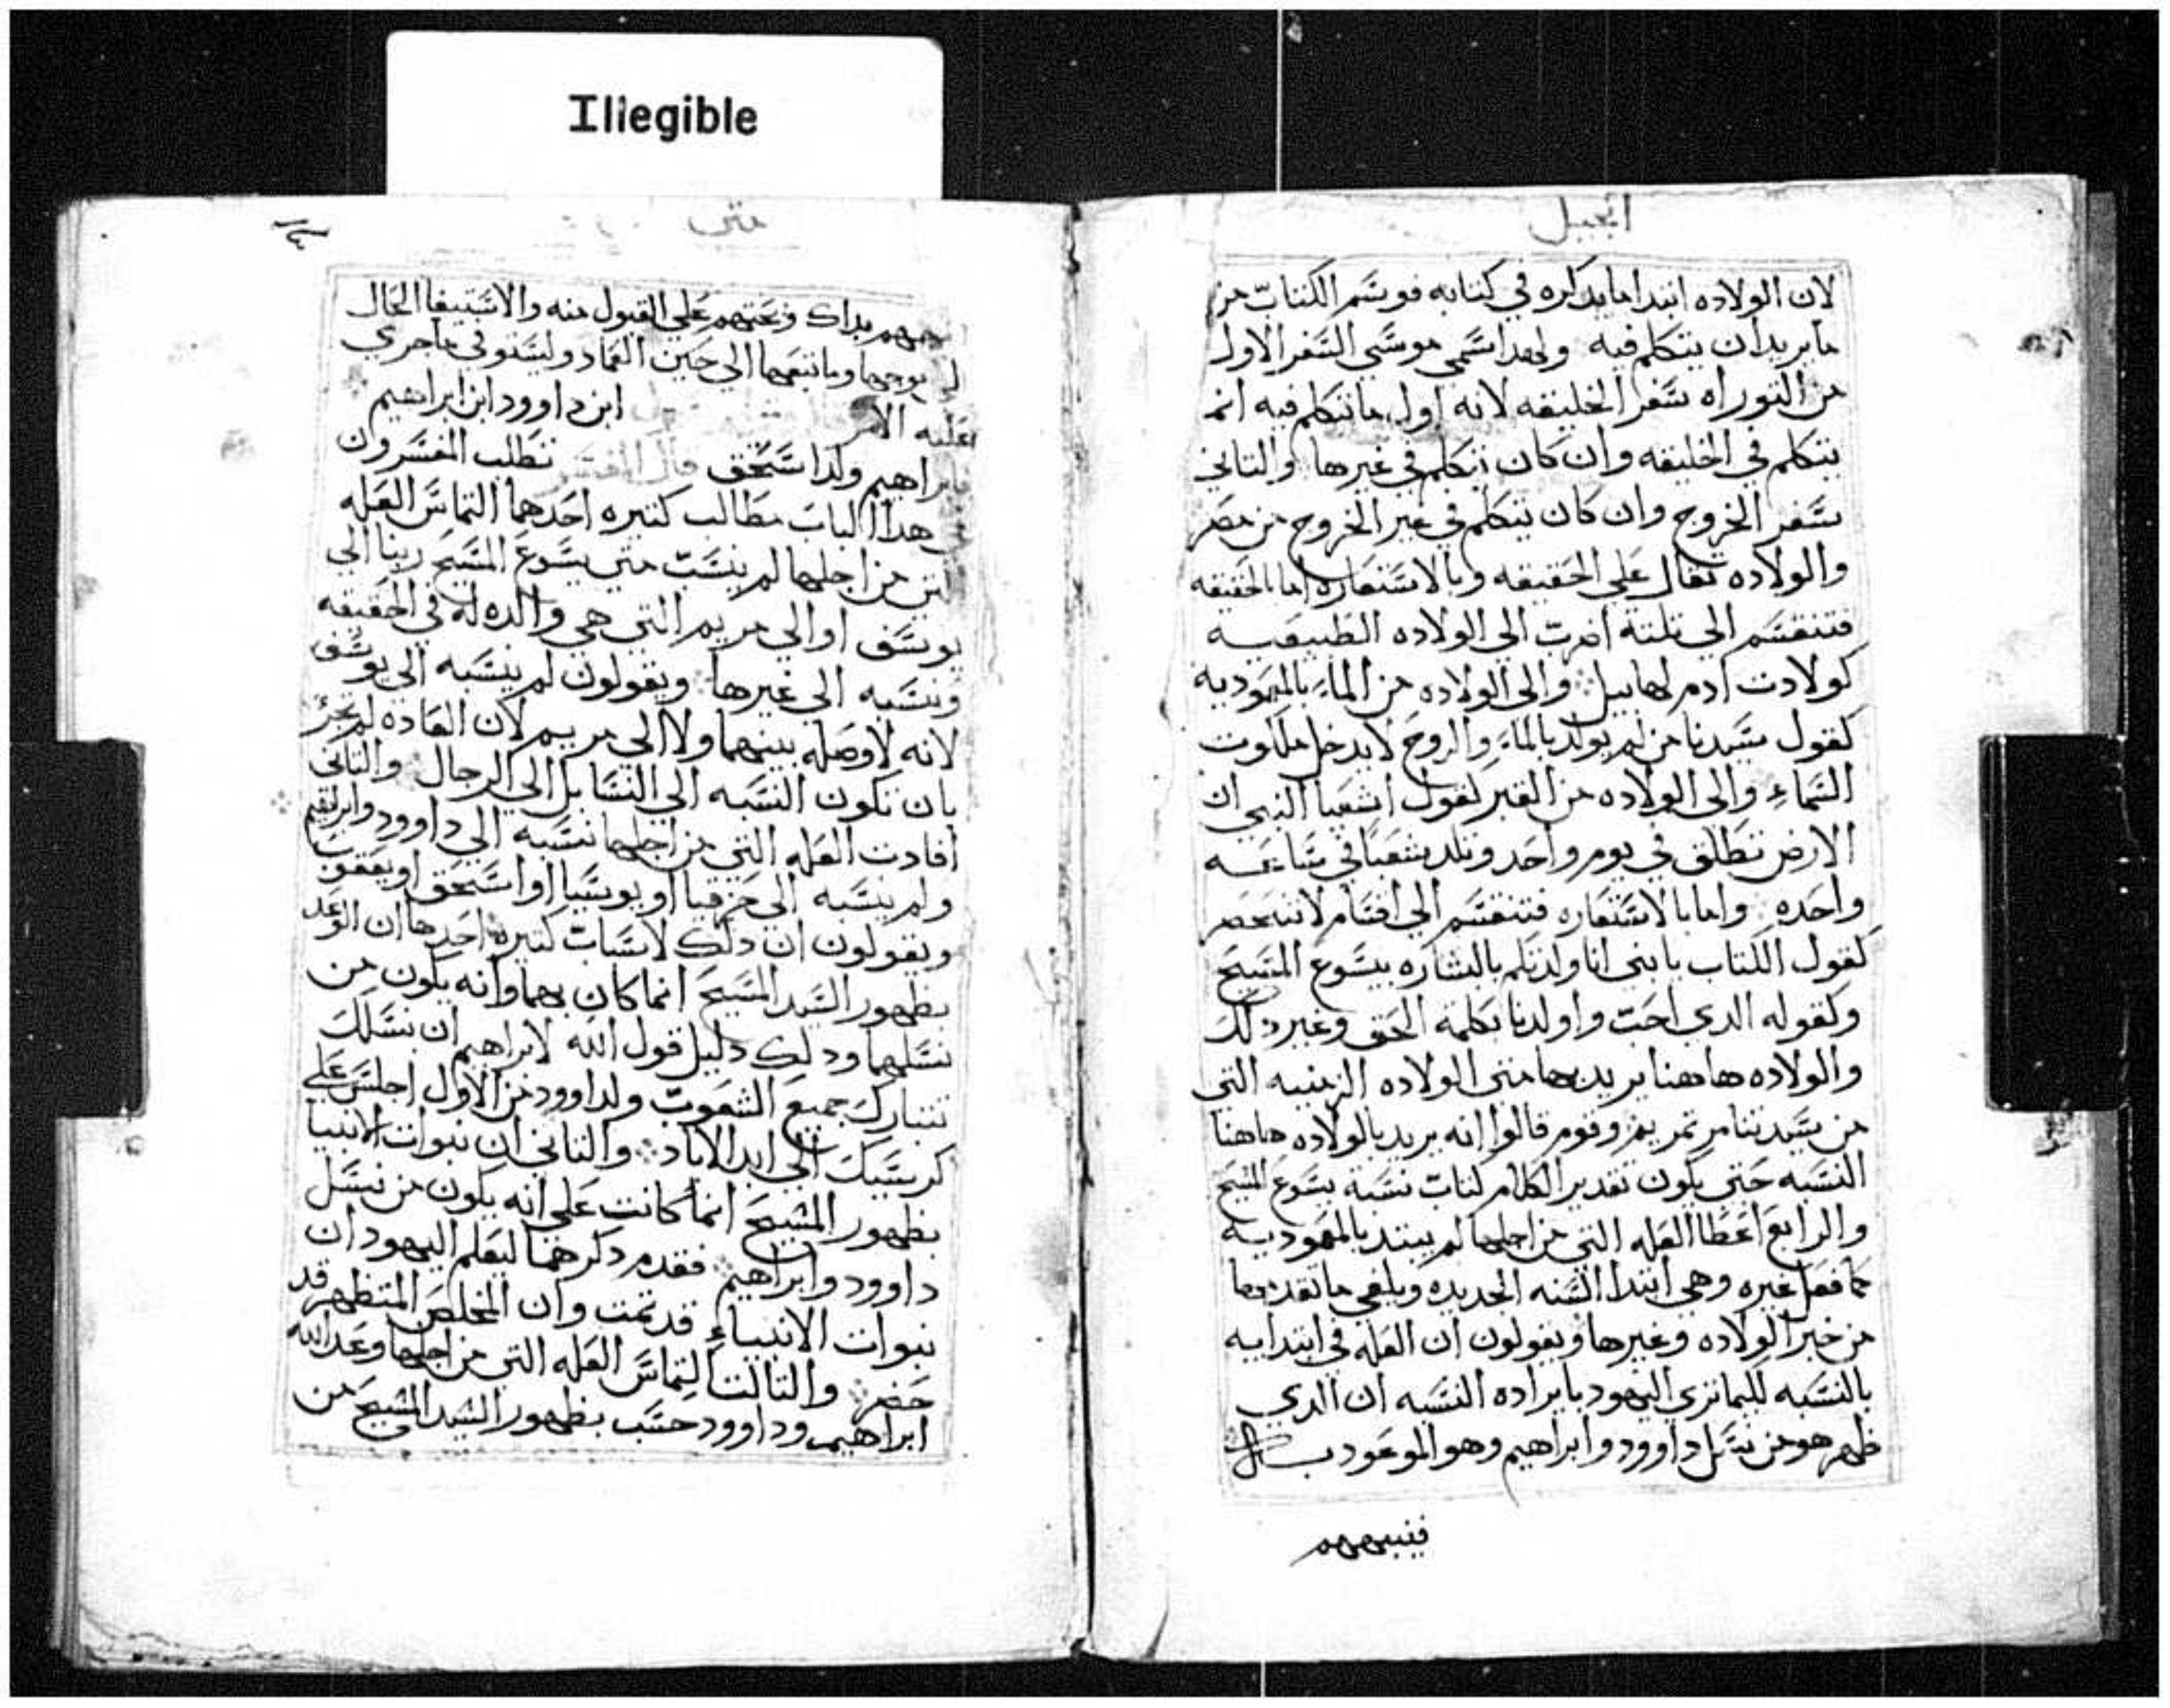 Illegible
انجيل
لان الولاده ابتدا مايدكره في كتابه فوسم الكتاب من
مايريد ان يتكلم فيه ولهدا سمي موسي السفر الاول
من التوراه سفر الخليقه لانه اول ماتتكلم فيه انه
يتكلم في الخليقه وان كان تتكلم في غيرها والتاني
سفر الخروج وان كان يتكلم في غير الخروج من مصر
والولاده تقال علي الحقيقه وبالاستعاره اما الحقيقه
فتنقسم الي تلتة اضرب الي الولاده الطبيعيه
كولادت ادم لهابيل والي الولاده من الماء بالمعموديه
كقول سيدنا من لم يولد بالماء والروح لايدخل ملكوت
السماء والي الولاده من القبر كقول اشعيا النبي ان
الارض تطلق في يوم واحد وتلد شعبا في ساعه
واحده واما بالاستعاره فتنقسم الي اقسام لاتنحصر
كقول الكتاب يابني انا ولدتكم بالبشاره بيسوع المسيح
وكقوله الدي احب واولدنا بكلمة الحق وغير دلك
والولاده هاهنا يريد بها متي الولاده الزمنيه التي
من سيدتنا مرتمريم وقوم قالوا انه يريد بالولاده هاهنا
النسبه حتي يكون تقدير الكلام كتاب نسبة يسوع المسيح
والرابع اعطا العله التي من اجلها لم يبتد بالمعموديه
كما فعل غيره وهي ابتدا السنه الجديده ويلغي ماتقدمها
من خبر الولاده وغيرها ويقولون ان العله في ابتدايه
بالنسبه لليمانزي اليهود بايراده النسبه ان الدي
ظهر هو من نسل داوود وابراهيم وهو الموعود به
فينبههم
متي
بداك وبحتهم علي القبول منه والاستيفا الحال
وماتبعهما الي حين العماد وليستوفي ماجري
عليه الامر ابن داوود ابن ابراهيم
ابراهيم ولد اسحق قال المفسر تطلب المفسرون
هدا الباب مطالب كتيره احدها التماس العله
التي من اجلها لم ينسب متي يسوع المسيح ربنا الي
يوسف او الي مريم التي هي والده له في الحقيقه
ونسبه الي غيرها ويقولون لم ينسبه الي يوسف
لانه لاوصله بينهما ولا الي مريم لان العاده لم تجر
بان تكون النسبه الي النسا بل الي الرجال والتاني
افادت العله التي من اجلها نسبه الي داوود وابراهيم
ولم ينسبه الي حزقيا او يوسيا او اسحق او يعقوب
ويقولون ان دلك لاسباب كتيره احدها ان الوعد
بظهور السيد المسيح انما كان بهما وانه يكون من
نسلهما ودلك دليل قول الله لابراهيم ان بنسلك
تتبارك جميع الشعوب ولداوود من الاول اجلس علي
كرسيك الي ابد الاباد والتاني ان نبوات الانبيا
بظهور المسيح انما كانت علي انه يكون من نسل
داوود وابراهيم فقدم دكرهما ليعلم اليهود ان
نبوات الانبياء قد تمت وان المخلص المنتظر قد
حضر والتالت التماس العله التي من اجلها وعد الله
ابراهيم وداوود حسب بظهور السيد المسيح من